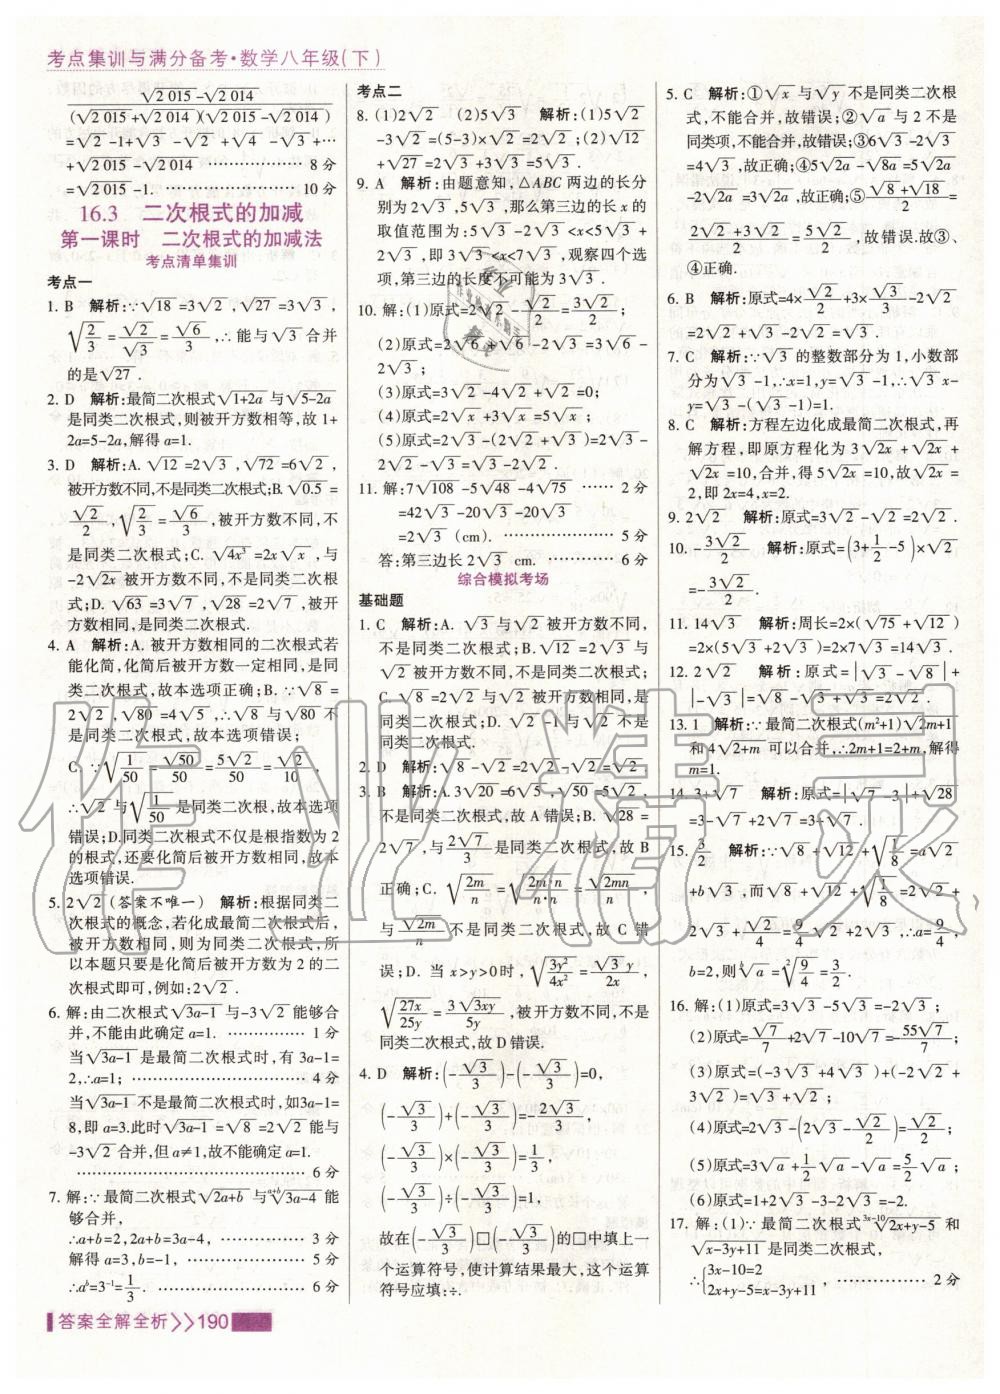 考点集训与满分备考·数学八年级(下)
√2 015-√2 014
(√2 015+√2 014)(√2 015-√2 014)
=√2-1+√3-√2+√4-√3+…
+√2 015-√2 014 ……………… 8分
=√2 015-1. ……………………… 10分
16.3 二次根式的加减
第一课时 二次根式的加减法
考点清单集训
考点一
1. B 解析:∵√18=3√2,√27=3√3,
√(2/3)=√2/√3=√6/3,∴能与√3合并
的是√27.
2. D 解析:最简二次根式√1+2a与√5-2a
是同类二次根式,则被开方数相等,故1+
2a=5-2a,解得a=1.
3. D 解析:A.√12=2√3,√72=6√2,
被开方数不同,不是同类二次根式;B.√0.5=
√2/2,√(2/3)=√6/3,被开方数不同,不
是同类二次根式;C.√4x³=2x√x,与
-2√2x被开方数不同,不是同类二次根
式;D.√63=3√7,√28=2√7,被开
方数相同,是同类二次根式.
4. A 解析:A.被开方数相同的二次根式若
能化简,化简后被开方数一定相同,是同
类二次根式,故本选项正确;B.∵√8=
2√2,√80=4√5,∴√8与√80不
是同类二次根式,故本选项错误;
C.∵√(1/50)=√50/50=5√2/50=√2/10,
∴√2与√(1/50)是同类二次根,故本选项
错误;D.同类二次根式不仅是根指数为2
的根式,还要化简后被开方数相同,故本
选项错误.
5. 2√2(答案不唯一) 解析:根据同类二
次根式的概念,若化成最简二次根式后,
被开方数相同,则为同类二次根式,所
以本题只要是化简后被开方数为2的二
次根式即可,例如:2√2.
6. 解:由二次根式√3a-1与-3√2能够合
并,不能由此确定a=1. …………… 1分
当√3a-1是最简二次根式时,有3a-1=
2,∴a=1; ……………………… 4分
当√3a-1不是最简二次根式时,如3a-1=
8,即a=3.此时√3a-1=√8=2√2能与
-3√2合并,但a≠1,故不能确定a=1.
……………………………… 6分
7. 解:∵最简二次根式√2a+b与ᵃ⁺ᵇ√3a-4能
够合并,
∴a+b=2,2a+b=3a-4, ………… 3分
解得a=3,b=-1. ……………… 5分
∴aᵇ=3⁻¹=1/3. ……………… 6分
考点二
8. (1)2√2 (2)5√3 解析:(1)5√2
-3√2=(5-3)×√2=2√2;(2)√12
+√27=2√3+3√3=5√3.
9. A 解析:由题意知,△ABC两边的长分
别为2√3,5√3,那么第三边的长x的
取值范围为:5√3-2√3<x<5√3+
2√3,即3√3<x<7√3,观察四个选
项,第三边的长度不可能为3√3.
10. 解:(1)原式=2√2-√2/2=3√2/2;
(2)原式=2√6+√6-2√3=3√6-
2√3;
(3)原式=3√2-4√2+√2=0;
(4)原式=2√x+3√x=5√x;
(5)原式=2√3-(2√2+√3)=2√3-
2√2-√3=√3-2√2.
11. 解:7√108-5√48-4√75 …… 2分
=42√3-20√3-20√3
=2√3(cm). …………………… 5分
答:第三边长2√3 cm. ………… 6分
综合模拟考场
基础题
1. C 解析:A.√3与√2被开方数不同,
不是同类二次根式;B.√12=2√3与
√2被开方数不同,不是同类二次根式;
C.√8=2√2与√2被开方数相同,是
同类二次根式;D.√2-1与√2不是
同类二次根式.
2. D 解析:√8-√2=2√2-√2=√2.
3. B 解析:A.3√20=6√5,√50=5√2,
被开方数不同,故A错误;B.√28=
2√7,与2√7/3是同类二次根式,故B
正确;C.√(2m/n)=√(2m·n/n·n)=√2mn/n,
与√2m/n不是同类二次根式,故C错
误;D.当x>y>0时,√(3y²/4x²)=√3y/2x,
√(27x/25y)=3√3xy/5y,被开方数不同,不是
同类二次根式,故D错误.
4. D 解析:(-√3/3)-(-√3/3)=0,
(-√3/3)+(-√3/3)=-2√3/3,
(-√3/3)×(-√3/3)=1/3,
(-√3/3)÷(-√3/3)=1,
故在(-√3/3)□(-√3/3)的□中填上一
个运算符号,使计算结果最大,这个运算
符号应填:÷.
5. C 解析:①√x与√y不是同类二次根
式,不能合并,故错误;②√a与2不是
同类项,不能合并,故错误;③6√3-2√3
=4√3,故正确;④5√2a-√8a=5√2a
-2√2a=3√2a,故正确;⑤(√8+√18)/2=
(2√2+3√2)/2=5√2/2,故错误.故③、
④正确.
6. B 解析:原式=4×√2/2+3×√3/3-2√2
=2√2+√3-2√2=√3.
7. C 解析:∵√3的整数部分为1,小数部
分为√3-1,∴x=1,y=√3-1,∴√3x-
y=√3-(√3-1)=1.
8. C 解析:方程左边化成最简二次根式,再
解方程,即原方程化为3√2x+√2x+
√2x=10,合并,得5√2x=10,故√2x=
2,即2x=4,x=2.
9. 2√2 解析:原式=3√2-√2=2√2.
10. -3√2/2 解析:原式=(3+1/2-5)×√2
=-3√2/2.
11. 14√3 解析:周长=2×(√75+√12)
=2×(5√3+2√3)=2×7√3=14√3.
12. 2√2 解析:原式=|√3-√8|+
|-√3|=√8-√3+√3=2√2.
13. 1 解析:∵最简二次根式(m²+1)√2m+1
和4√2+m可以合并,∴2m+1=2+m,解得
m=1.
14. 3+√7 解析:原式=|√7-3|+√28
=3-√7+2√7=3+√7.
15. 3/2 解析:∵√8+√12+√(1/8)=a√2
+b√3,而√8+√12+√(1/8)=2√2+
2√3+√2/4=9/4√2+2√3,∴a=9/4,
b=2,则ᵇ√a=√(9/4)=3/2.
16. 解:(1)原式=3√3-5√3=-2√3;
(2)原式=√7/7+2√7-10√7=-55√7/7;
(3)原式=(-3√3+4√3)+(-2√2+
3√2)=√3+√2;
(4)原式=2√3-(2√3-√2/2)=√2/2;
(5)原式=3√a+1/2√a-√a=5/2√a;
(6)原式=1+2√3-3-2√3=-2.
17. 解:(1)∵最简二次根式³ˣ⁻¹⁰√2x+y-5和
√x-3y+11是同类二次根式,
∴{3x-10=2
2x+y-5=x-3y+11, ……………… 2分
答案全解全析>>190
作业精灵